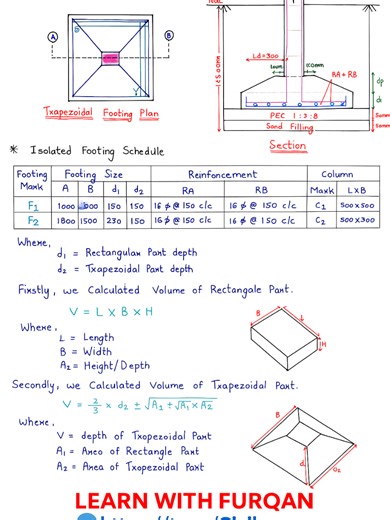 A
B
Trapezoidal Footing Plan
Ld=300
100mm
100mm
RA + RB
1500mm
dp
di
PEC 1:3:8
Sand Filling
Section
* Isolated Footing Schedule
Footing Mark | Footing Size | Reinforcement | Column
A | B | d1 | d2 | RA | RB | Mark | LXB
F1 | 1000 | 900 | 150 | 150 | 16 ϕ @ 150 c/c | 16 ϕ @ 150 c/c | C1 | 500x500
F2 | 1800 | 1500 | 230 | 150 | 16 ϕ @ 150 c/c | 16 ϕ @ 150 c/c | C2 | 500x300
Where,
d1 = Rectangular Part depth
d2 = Trapezoidal Part depth
Firstly, we Calculated Volume of Rectangale Part.
V = L X B X H
Where,
L = Length
B = Width
A2 = Height/Depth
B
L
H
Secondly, we Calculated Volume of Trapezoidal Part.
V = 2/3 x d2 ± √A1 + √A1 x A2
Where,
V = depth of Trapezoidal Part
A1 = Area of Rectangle Part
A2 = Area of Trapezoidal Part
B
d
LEARN WITH FURQAN